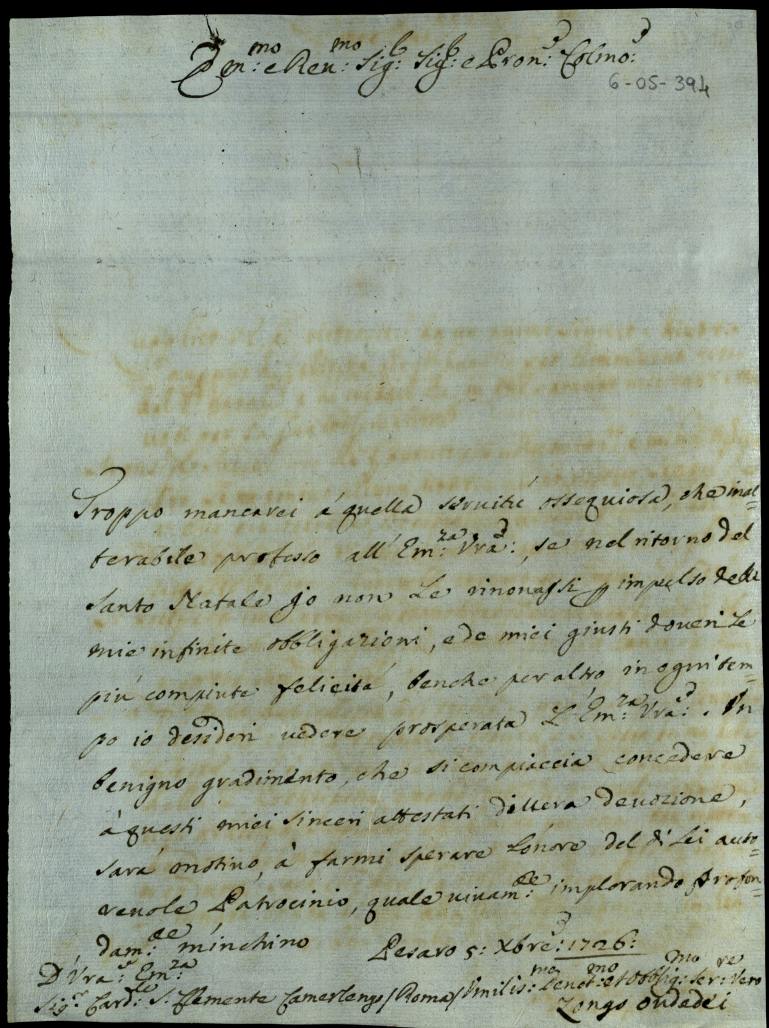 Em:mo e Reu:mo Sig:r Sig:r e Pron: Colmo:
6-05-394
Troppo mancarei á quella seruitú ossequiosa, che inal=
terabile professo all' Em:za Vrã:, se nel ritorno del
Santo Natale jo non Le rinouassi p impulso delle
mie infinite obbligazioni, e de miei giusti doueri Le
piú compiute felicitá, benche per altro in ogni tem=
po io desideri uedere prosperata L'Em:za Vrã: . Un
benigno gradimento, che si compiaccia concedere
à questi miei sinceri attestati di uera deuozione,
sará motiuo, à farmi sperare l'onore del di Lei auto=
reuole Patrocinio, quale uiuam:te implorando profon=
dam:te m'inchino Pesaro 5: Xbre: 1726:
D'Vra: Em:za
Sig:r Card:le S: Clemente Camerlengo / Roma / Vmilis:mo Deuot:mo et Obblig:mo Ser:re Vero
Zongo Ondedei